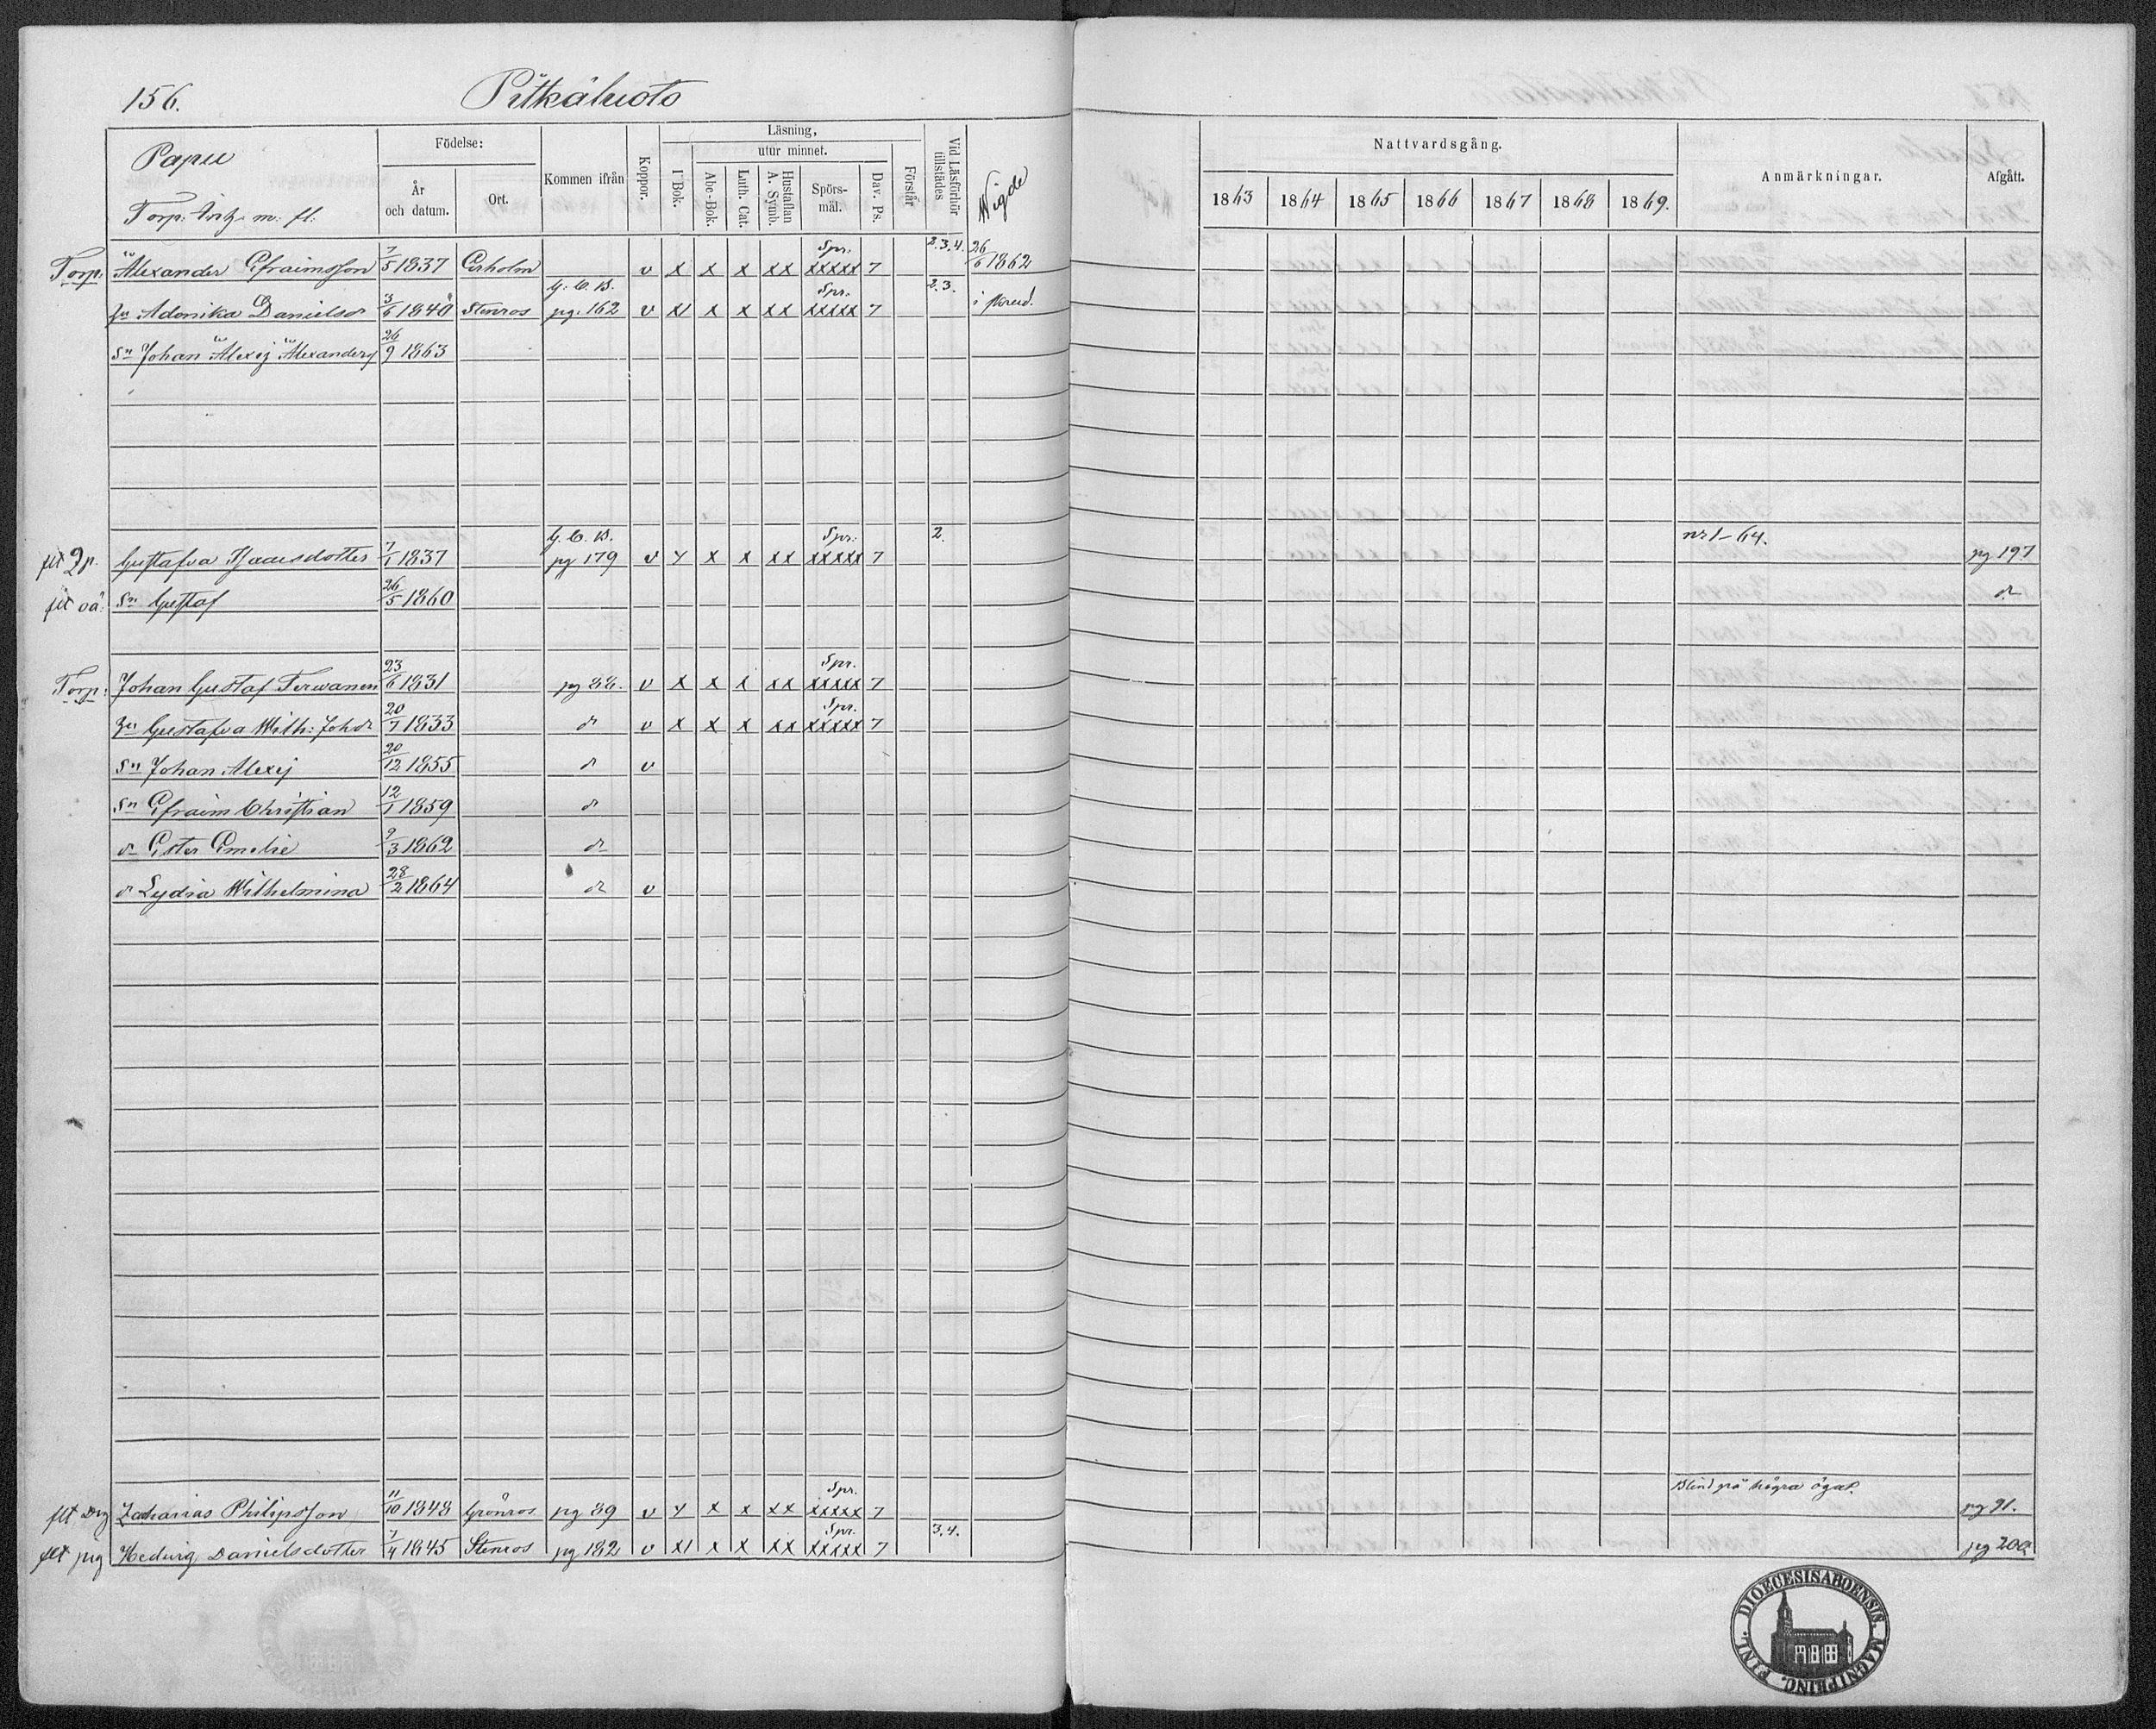 156. Pitkäluoto
Papu
Torp: Fritz m: fl:
Födelse:
År och datum.
Ort.
Kommen ifrån
Koppor.
Läsning,
utur minnet.
I Bok.
Abc-Bok.
Luth. Cat.
Hustaflan A. Symb.
Spörs-mål.
Dav. Ps.
Förstår
Vid Läsförhör tillstädes
Wigde
Nattvardsgång.
1863 1864 1865 1866 1867 1868 1869.
Anmärkningar.
Afgått.
Torp: Alexander Efraimsson 7/5 1837 v x x x xx Spr. xxxxx 7 2.3.4. 26/6 1862
hu Adonika Danielsdr 3/6 1840 Stenros g. C. B. pg. 162 v x x x xx Spr. xxxxx 7 2.3.
sn Johan Alexej Alexanders 26/9 1863
flt Gustafva Isaacsdotter 7/1 1837 g. C. B. pg 179 v y x x xx Spr: xxxxx 7 2. nr 1-64. pg 197
flt oä: sn Gustaf 26/5 1860 dr
Torp: Johan Gustaf Terwanen 23/6 1831 pg 88. v x x x xx Spr. xxxxx 7
hu Gustafva Wilh: Johdr 20/7 1833 dr v x x x xx Spr. xxxxx 7
sn Johan Alexej 20/12 1855 dr v
sn Efraim Christian 12/1 1859 dr
dr Ester Emelie 9/3 1862 dr
dr Lydia Wilhelmina 28/2 1864 dr v
flt drg Zacharias Philipsson 11/10 1848 Grönros pg 89 v y x x xx Spr. xxxxx 7 Blind på högra ögat. pg 91.
flt pig Hedwig Danielsdotter 7/4 1845 Stenros pg 182 v x x x xx Spr. xxxxx 7 3.4. pg 200
FINL. DIOECESIS ABOENSIS. MAGNI PRINC.